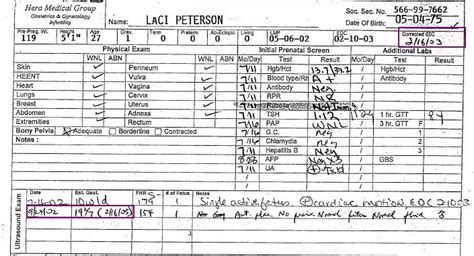 Hera Medical Group
Obstetrics & Gynecology
Infertility
LACI PETERSON
Soc. Sec. No. 566-99-7662
Date of Birth: 05-04-75
Pre-Preg. Wt. Height Age Grav Term Prem Ab-Ectopic Living LMP EDC Corrected EDC
119 5'1" 27 1 0 0 0 0 05-06-02 02-10-03 2/16/03
Physical Exam Initial Prenatal Screen Additional Labs
WNL ABN WNL ABN Mo/Day Test Result Mo/Day Test Result
Skin Perineum 7/11 Hgb/Hct Hgb/Hct
HEENT Vulva 7/11 Blood type/Rh A + Antibody
Heart Vagina 7/11 Antibody Neg
Lungs Cervix 7/11 RPR
Breast Uterus 7/11 Rubella Not Imm
Abdomen Adnexa 7/11 TSH 1.12 1 hr. GTT 84
Extremities Rectum PAP WNL 3 hr. GTT F
Bony Pelvis Adequate Borderline Contracted G.C. Neg 1
Notes: Chlamydia Neg 2
7/11 Hepatitis B Neg 3
AFP Neg GBS
7/11 UA
Ultrasound Exam
Date Est. Gest. FHR # Fetus Notes
7-16-02 10 wld 179 1 Single active fetus, cardiac motion, EDC 21003
9/24/02 19 4/7 (2/16/03) 154 1 No Normal Normal fluid